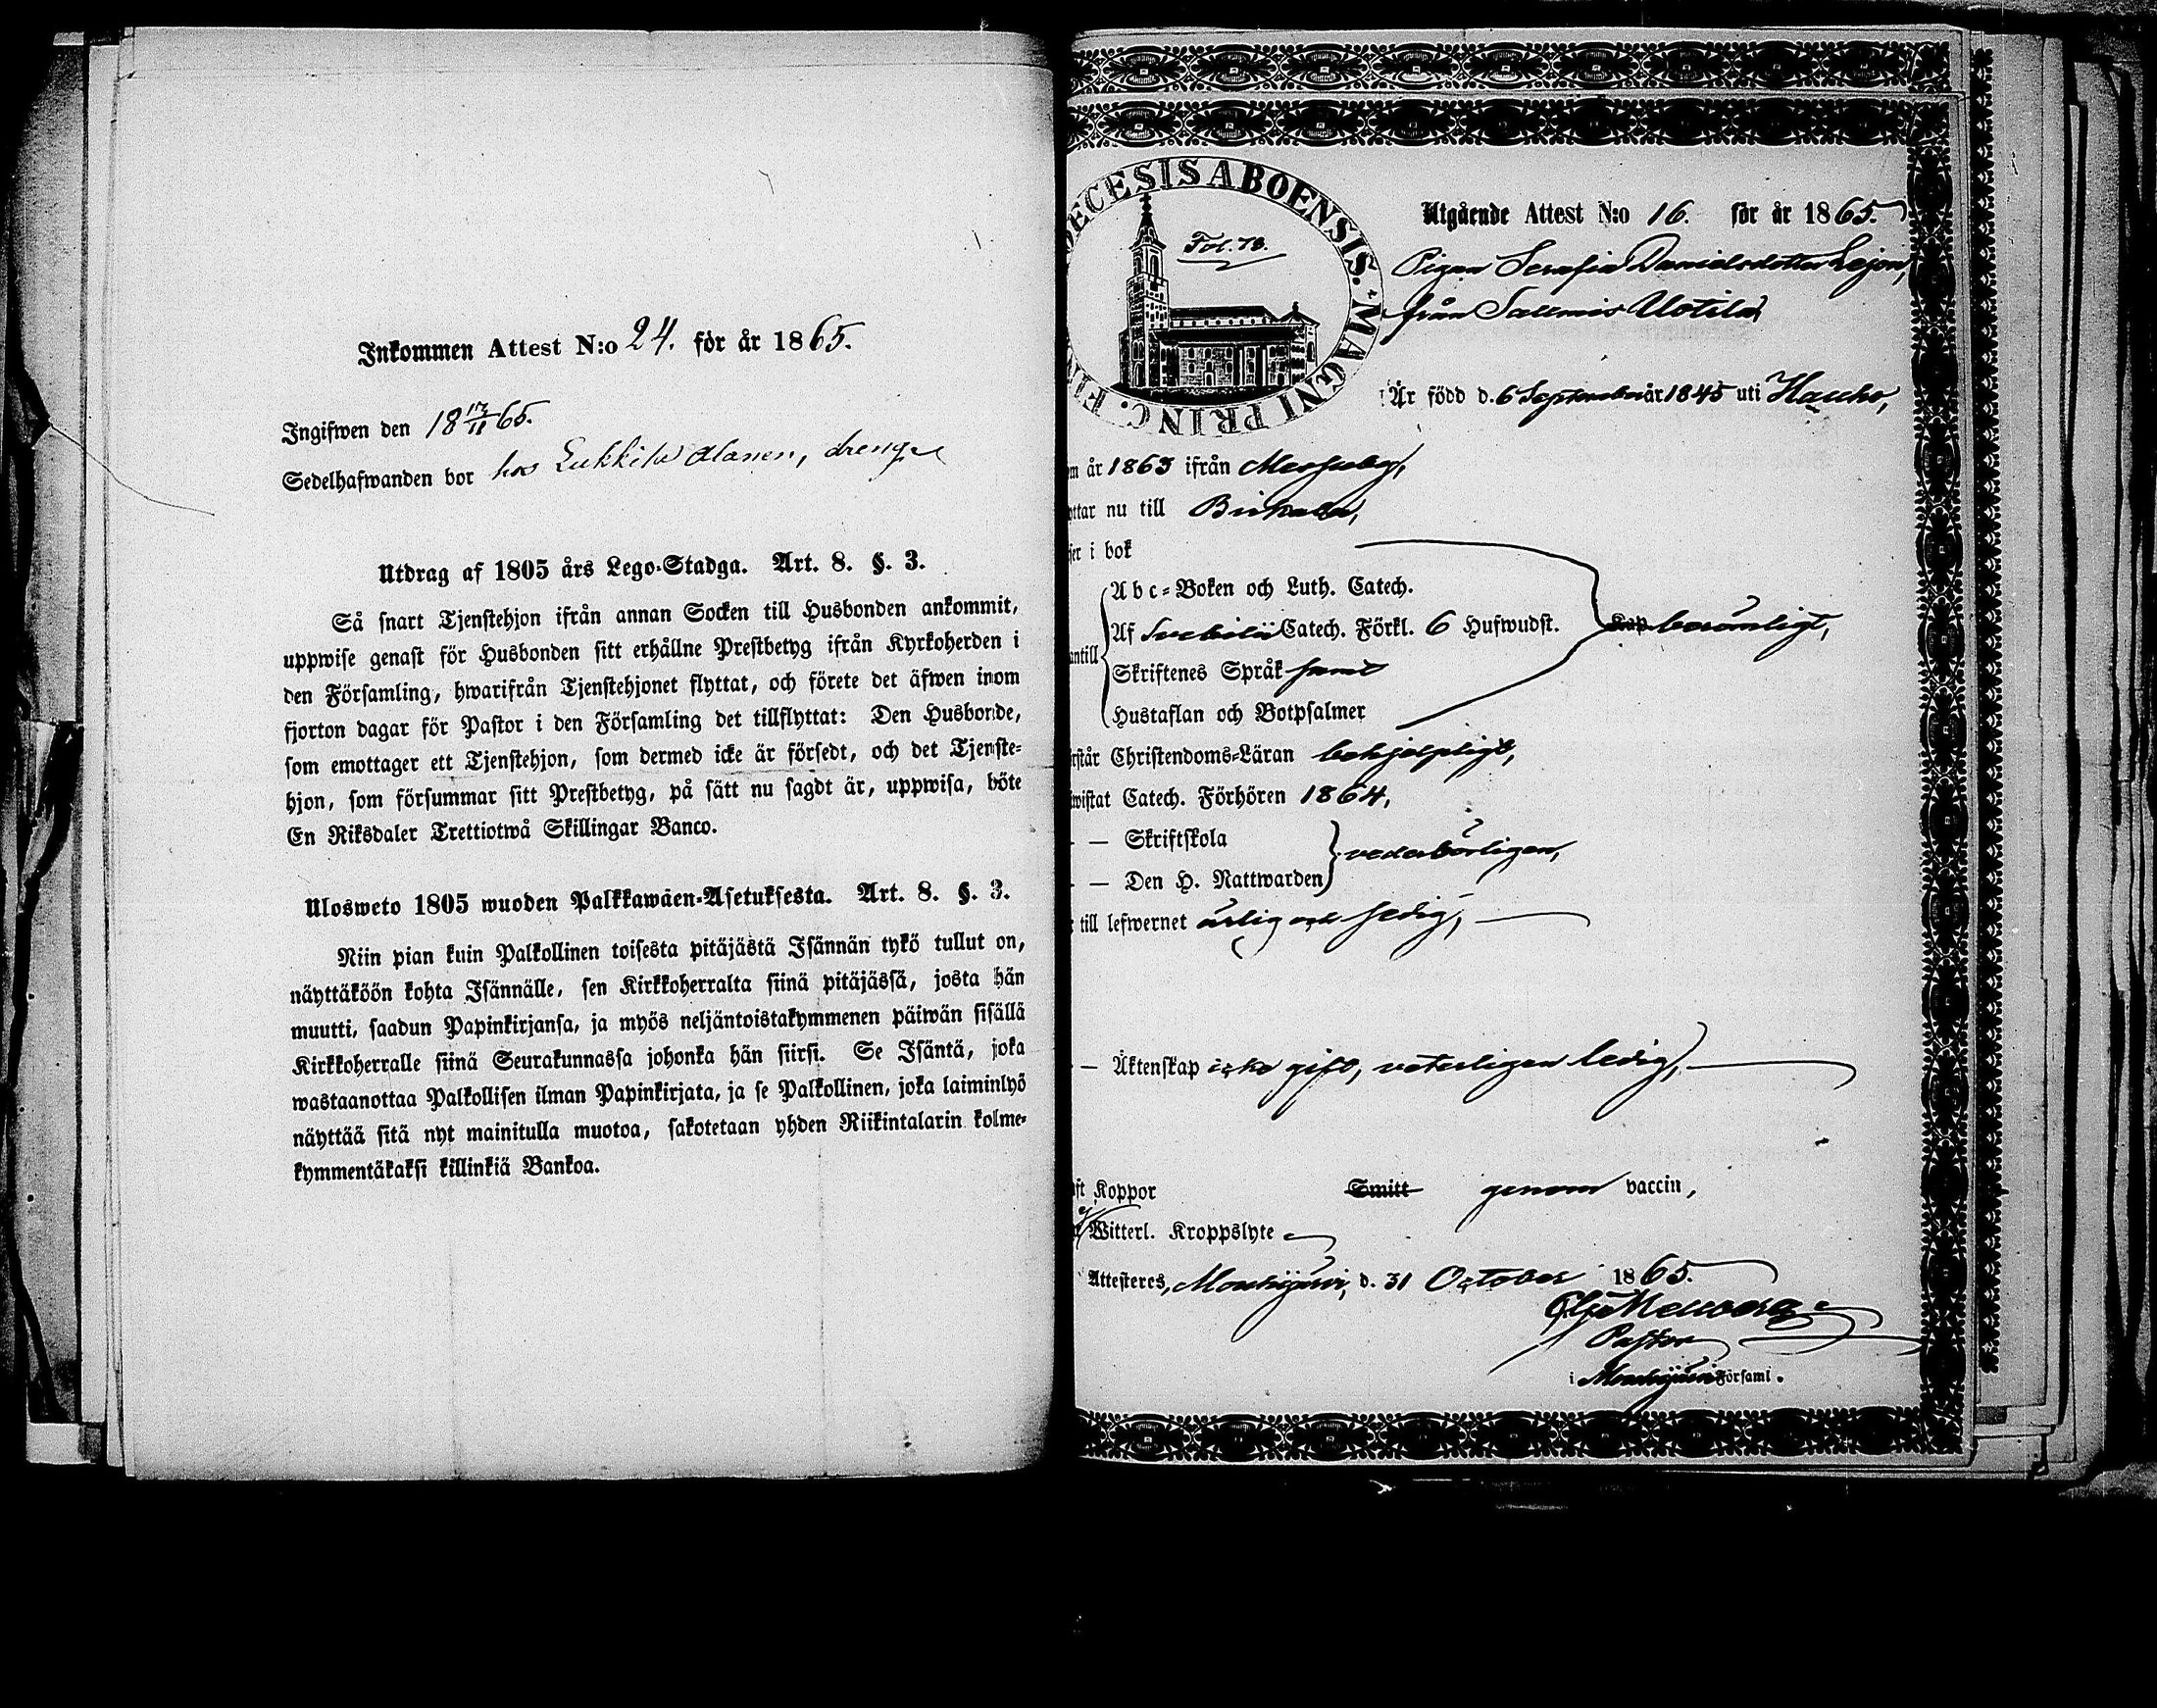 Inkommen Attest N:o 24. för år 1865.
Ingifwen den 18 17/11 65.
Sedelhafwanden bor hos Lukkila Alanen, dreng
Utdrag af 1805 års Lego-Stadga. Art. 8. §. 3.
Så snart Tjenstehjon ifrån annan Socken till Husbonden ankommit,
uppwise genast för Husbonden sitt erhållne Prestbetyg ifrån Kyrkoherden i
den Församling, hwarifrån Tjenstehjonet flyttat, och förete det äfwen inom
fjorton dagar för Pastor i den Församling det tillflyttat: Den Husbonde,
som emottager ett Tjenstehjon, som dermed icke är försedt, och det Tjenste-
hjon, som försummar sitt Prestbetyg, på sätt nu sagdt är, uppwisa, böte
En Riksdaler Trettiotwå Skillingar Banco.
Ulosweto 1805 wuoden Palkkawäen-Asetuksesta. Art. 8. §. 3.
Niin pian kuin Palkollinen toisesta pitäjästä Isännän tykö tullut on,
näyttäköön kohta Isännälle, sen Kirkkoherralta siinä pitäjässä, josta hän
muutti, saadun Papinkirjansa, ja myös neljäntoistakymmenen päiwän sisällä
Kirkkoherralle siinä Seurakunnassa johonka hän siirsi. Se Isäntä, joka
wastaanottaa Palkollisen ilman Papinkirjata, ja se Palkollinen, joka laiminlyö
näyttää sitä nyt mainitulla muotoa, sakotetaan yhden Riikintalarin kolme-
kymmentäkaksi killinkiä Bankoa.
ECESIS ABOENSIS. * MAGNI PRINC. FIN
Fol. 78.
Utgående Attest N:o 16. för år 1865.
Pigan Serafia Danielsdotter Lejon,
från Sallmis Uotila,
Är född d. 6 September år 1845 uti Hauho,
m år 1863 ifrån Messuby,
ttar nu till Birkala,
er i bok
Abc-Boken och Luth. Catech.
Af Svebilii Catech. Förkl. 6 Hufwudst. berömligt,
antill
Skriftenes Språk samt
Hustaflan och Botpsalmer
rstår Christendoms-Läran behjelpligt,
wistat Catech. Förhören 1864,
— Skriftskola
vederbörligen,
— Den H. Nattwarden
till lefwernet ärlig och sedig,
— Äktenskap icke gift, veterligen ledig,
ft Koppor Smitt genom vaccin,
Witterl. Kroppslyte
Attesteres, Mouhijärvi, d. 31 October 1865.
Pastor
i Mouhijärvi Församl.